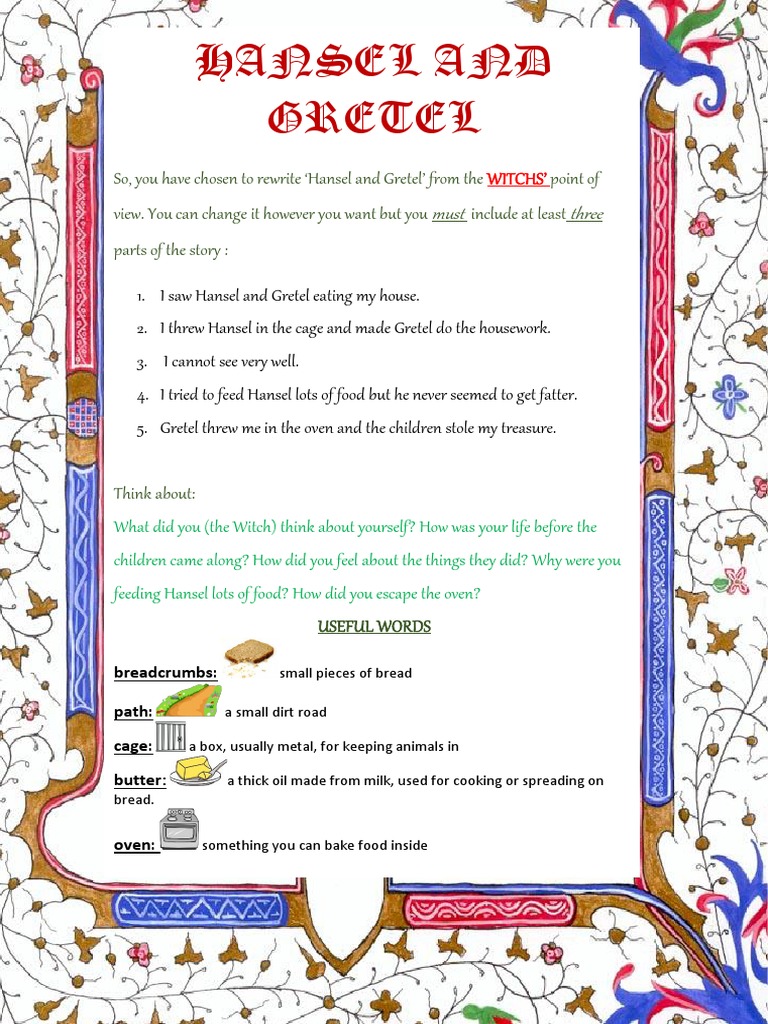 HANSEL AND
GRETEL
So, you have chosen to rewrite ‘Hansel and Gretel’ from the WITCHS’ point of
view. You can change it however you want but you must include at least three
parts of the story :
1. I saw Hansel and Gretel eating my house.
2. I threw Hansel in the cage and made Gretel do the housework.
3. I cannot see very well.
4. I tried to feed Hansel lots of food but he never seemed to get fatter.
5. Gretel threw me in the oven and the children stole my treasure.
Think about:
What did you (the Witch) think about yourself? How was your life before the
children came along? How did you feel about the things they did? Why were you
feeding Hansel lots of food? How did you escape the oven?
USEFUL WORDS
breadcrumbs: small pieces of bread
path: a small dirt road
cage: a box, usually metal, for keeping animals in
butter: a thick oil made from milk, used for cooking or spreading on
bread.
oven: something you can bake food inside